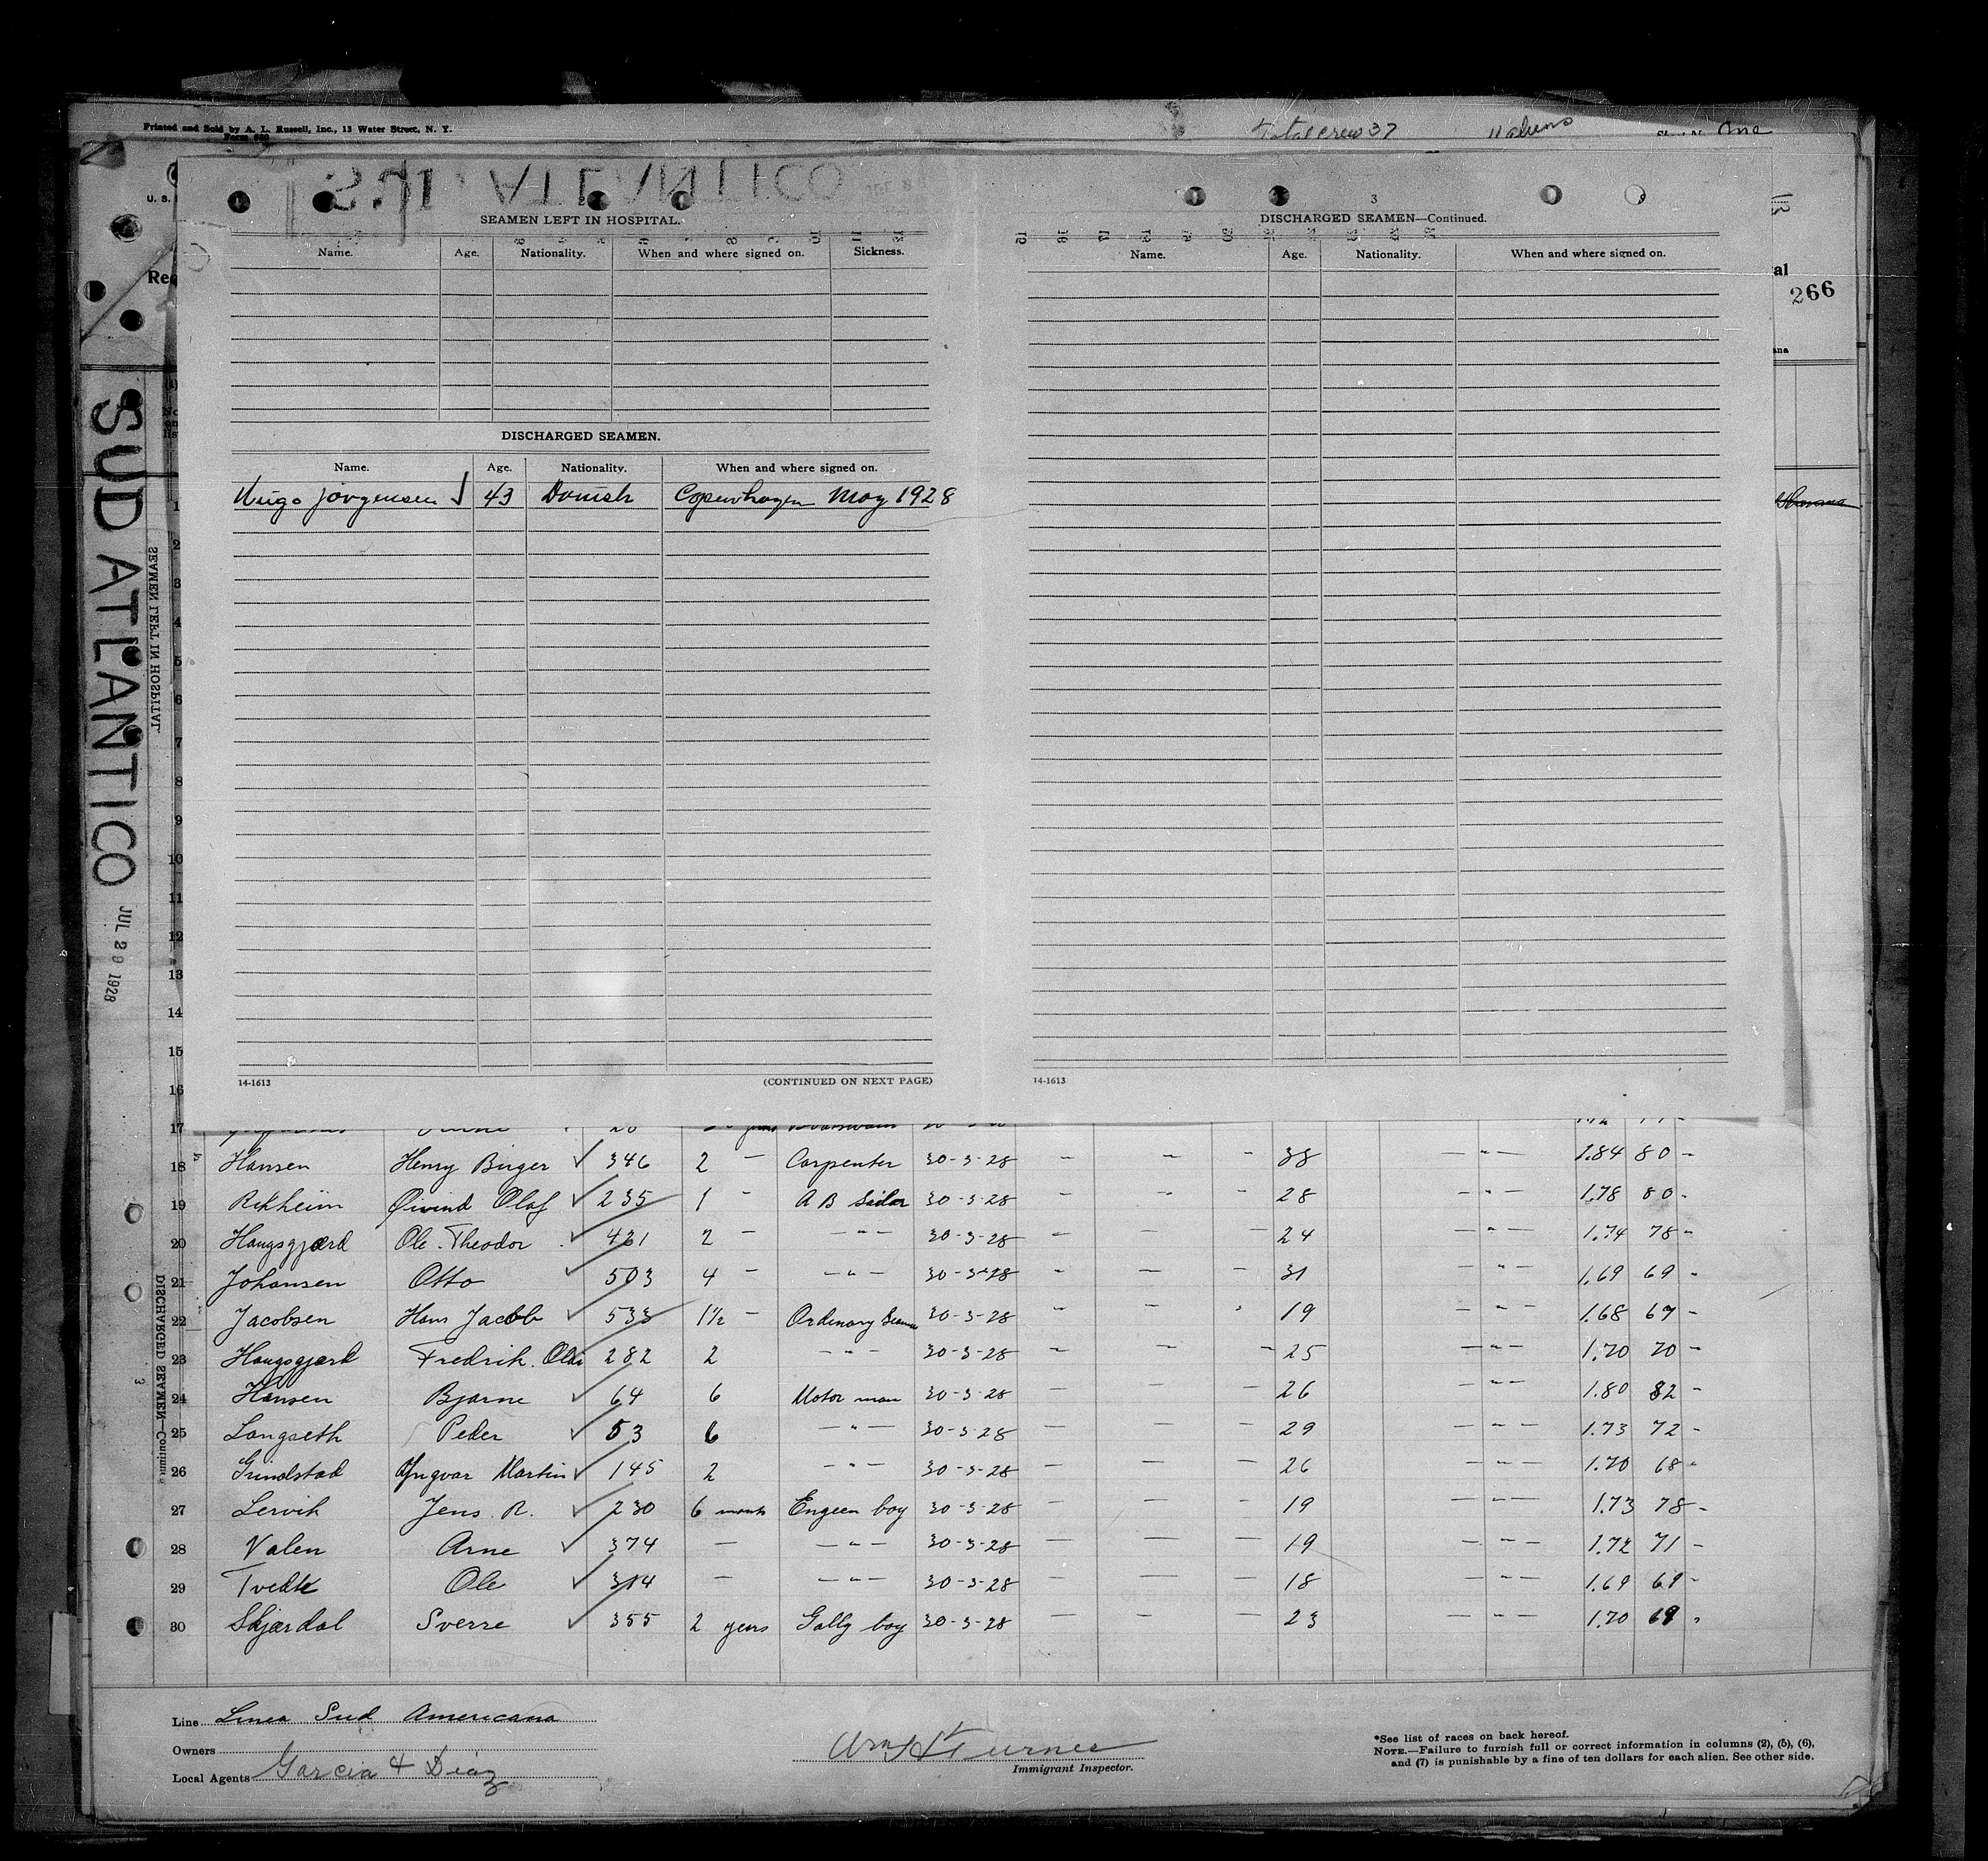 Printed and Sold by A. L. Russell, Inc., 13 Water Street, N. Y.
Total crew 37
266
SUD ATLANTICO
JUL 29 1928
2
SEAMEN LEFT IN HOSPITAL.
Name. Age. Nationality. When and where signed on. Sickness.
DISCHARGED SEAMEN.
Name. Age. Nationality. When and where signed on.
Hugo Jorgensen 43 Danish Copenhagen May 1928
14-1613 (CONTINUED ON NEXT PAGE)
3
DISCHARGED SEAMEN—Continued.
Name. Age. Nationality. When and where signed on.
14-1613
1
2
3
4
5
6
7
8
9
10
11
12
13
14
15
16
17
18 Hansen Henry Birger ✓ 346 2 - Carpenter 30-3-28 - - - 38 - " - 1.84 80 -
19 Rekheim Øivind Olaf ✓ 235 1 - A B Sailor 30-3-28 - - - 28 - " - 1.78 80 -
20 Haugsgjærd Ole Theodor ✓ 431 2 - - " - 30-3-28 - - 24 - " - 1.74 78 -
21 Johansen Otto ✓ 503 4 - - " - 30-3-28 - - - 31 - " - 1.69 69 -
22 Jacobsen Hans Jacob ✓ 533 1½ - Ordinary Seaman 30-3-28 - - - 19 - " - 1.68 67 -
23 Haugsgjærd Fredrik 282 2 - " - 30-3-28 - - - 25 - " - 1.70 70 -
24 Hansen Bjarne ✓ 64 6 Motor man 30-3-28 - - - 26 - " - 1.80 82 -
25 Langseth Peder ✓ 53 6 - " - 30-3-28 - - - 29 - " - 1.73 72 -
26 Grindstad Yngvar Martin ✓ 145 2 - " - 30-3-28 - - - 26 - " - 1.70 68 -
27 Lervik Jens R. ✓ 230 6 months Engeen boy 30-3-28 - - - 19 - " - 1.73 78 -
28 Valen Arne ✓ 374 - - " - 30-3-28 - - - 19 - " - 1.72 71 -
29 Tvedte Ole ✓ 314 - - " - 30-3-28 - - 18 - " - 1.69 69 -
30 Skjærdal Sverre ✓ 355 2 years Gally boy 30-3-28 - - - 23 - " - 1.70 69 -
Line Linea Sud Americana
Owners
Local Agents Garcia & Diaz
Wm H Turner
Immigrant Inspector.
*See list of races on back hereof.
NOTE.—Failure to furnish full or correct information in columns (2), (5), (6),
and (7) is punishable by a fine of ten dollars for each alien. See other side.